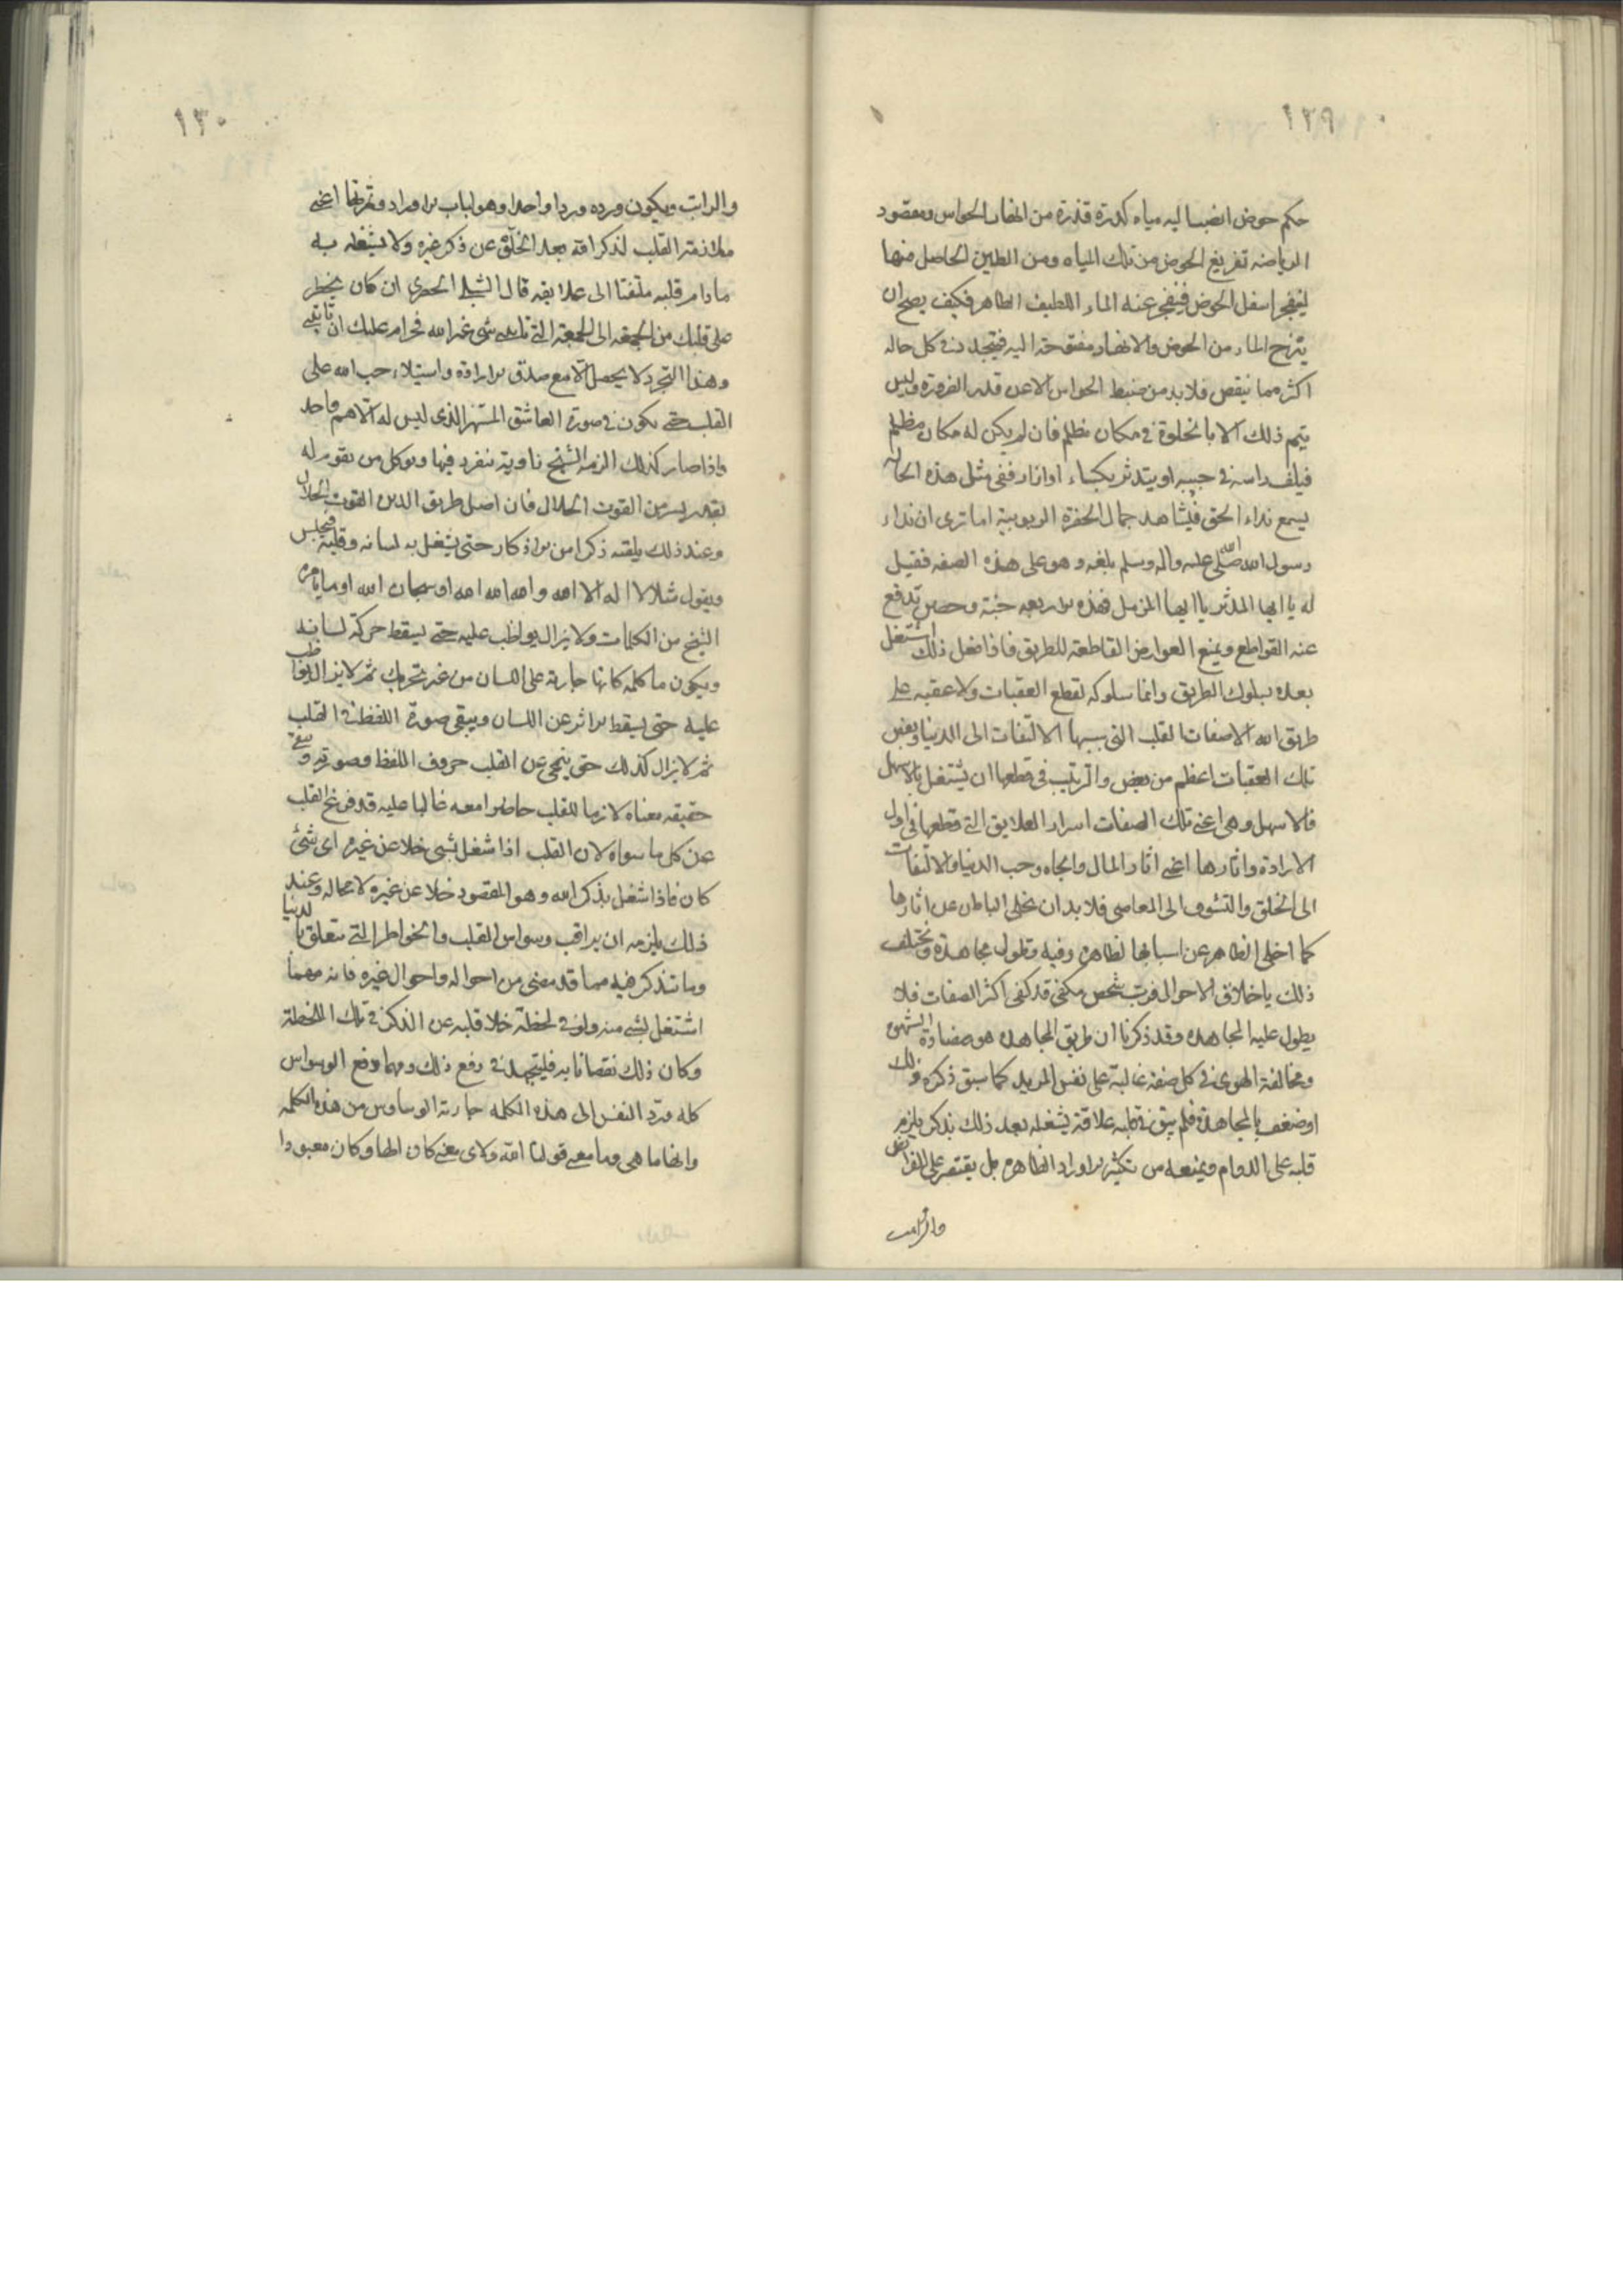 ١٢٩
حكم حوض انصبا ليه مياه كدرة قذرة من انهار الحواس ومقصود
الرياضه تفريغ الحوض من تلك المياه ومن الطين الحاصل منها
ليفجر اسفل الحوض فيتفجر عنه الماء اللطيف الطاهر فكيف يصح ان
ينزح الماء من الحوض والانهار مفتوحة اليه فيتجدد في كل حاله
اكثر مما ينقص فلا بد من ضبط الحواس الا عن قدر الضرورة وليس
يتم ذلك الا بالخلوة في مكان مظلم فان لم يكن له مكان مظلم
فيلف راسه في جيبه او يتدثر بكساء او ازار ففي مثل هذه الحاله
يسمع نداء الحق فيشاهد جمال الحضرة الربوبية اما ترى ان نداء
رسول الله صلى الله عليه واله وسلم بلغه وهو على هذه الصفه فقيل
له يا ايها المدثر يا ايها المزمل فهذه الاربعه جنة وحصن تدفع
عنه القواطع ويمنع العوارض القاطعة للطريق فاذا فعل ذلك اشتغل
بعده بسلوك الطريق وانما سلوكه لقطع العقبات ولا عقبه على
طريق الله الا صفات القلب التي سببها الالتفات الى الدنيا وبعض
تلك العقبات اعظم من بعض والترتيب في قطعها ان يشتغل بالاسهل
فالاسهل وهي اعني تلك الصفات اسرار العلايق التي قطعها في اول
الارادة واثارها اعني اثار المال والجاه وحب الدنيا والالتفات
الى الخلق والتشوف الى المعاصي فلا بد ان يخلي الباطن عن اثارها
كما اخلى الظاهر عن اسبابها الظاهرة وفيه وتطول مجاهدة وتختلف
ذلك باختلاف الاحوال فرب شخص مكفي قد كفي اكثر الصفات فلا
يطول عليه المجاهده وقد ذكرنا ان طريق المجاهده هو مضادة الشهوة
ومخالفة الهوى في كل صفة غالبة على نفس المريد كما سبق ذكره وذلك
اوضعف بالمجاهدة فلم يبق في قلبه علاقة يشغله بعد ذلك بذكر يلزم
قلبه على الدوام ويمنعه من تكثير الاوراد الظاهره بل يقتصر على الفرائض
والراتب
١٣٠
والراتب ويكون ورده وردا واحدا وهو لباب الاوراد وثمرتها اعني
ملازمة القلب لذكر الله بعد الخلو عن ذكر غيره ولا يشغله به
ما دام قلبه ملتفتا الى علايقه قال الشبلي الحصري ان كان يخطر
على قلبك من الجمعه الى الجمعة التي تاتيني شئ غير الله فحرام عليك ان تاتيني
وهذا التجرد لا يحصل الا مع صدق الارادة واستيلاء حب الله على
القلب حتى يكون في صورة العاشق المستهتر الذي ليس له الا هم واحد
واذا صار كذلك الزمه الشيخ زاوية ينفرد فيها ويوكل من يقوم له
بقدر يسير من القوت الحلال فان اصل طريق الدين القوت الحلال
وعند ذلك يلقنه ذكرا من الاذكار حتى يشغل به لسانه وقلبه فيجلس
ويقول مثلا لا اله الا الله والله الله الله او سبحان الله او ما يامره
الشيخ من الكلمات ولا يزال يواظب عليه حتى يسقط حركة لسانه
ويكون ما كلمه كانها جارية على اللسان من غير تحريك ثم لا يزال يواظب
عليه حتى يسقط الاثر عن اللسان ويبقى صورة اللفظ في القلب
ثم لا يزال كذلك حتى ينمحي عن القلب حروف اللفظ وصورته وتبقى
حقيقه معناه لازما للقلب حاضرا معه غالبا عليه قد فرغ القلب
عن كل ما سواه لان القلب اذا شغل بشئ خلا عن غيره اي شئ
كان فاذا شغل بذكر الله وهو المقصود خلا عن غيره لا محاله وعند
ذلك يلزمه ان يراقب وسواس القلب والخواطر التي تتعلق بالدنيا
وما تتذكر فيه مما قد مضى من احواله واحوال غيره فانه مهما
اشتغل بشئ منه ولو في لحظة خلا قلبه عن الذكر في تلك اللحظة
وكان ذلك نقصانا به فليجهد في دفع ذلك ومهما دفع الوسواس
كله ورد النفس الى هذه الكلمه جارته الوساوس من هذه الكلمه
وانها ما هي وما معنى قولنا الله ولاي معنى كان الها وكان معبودا